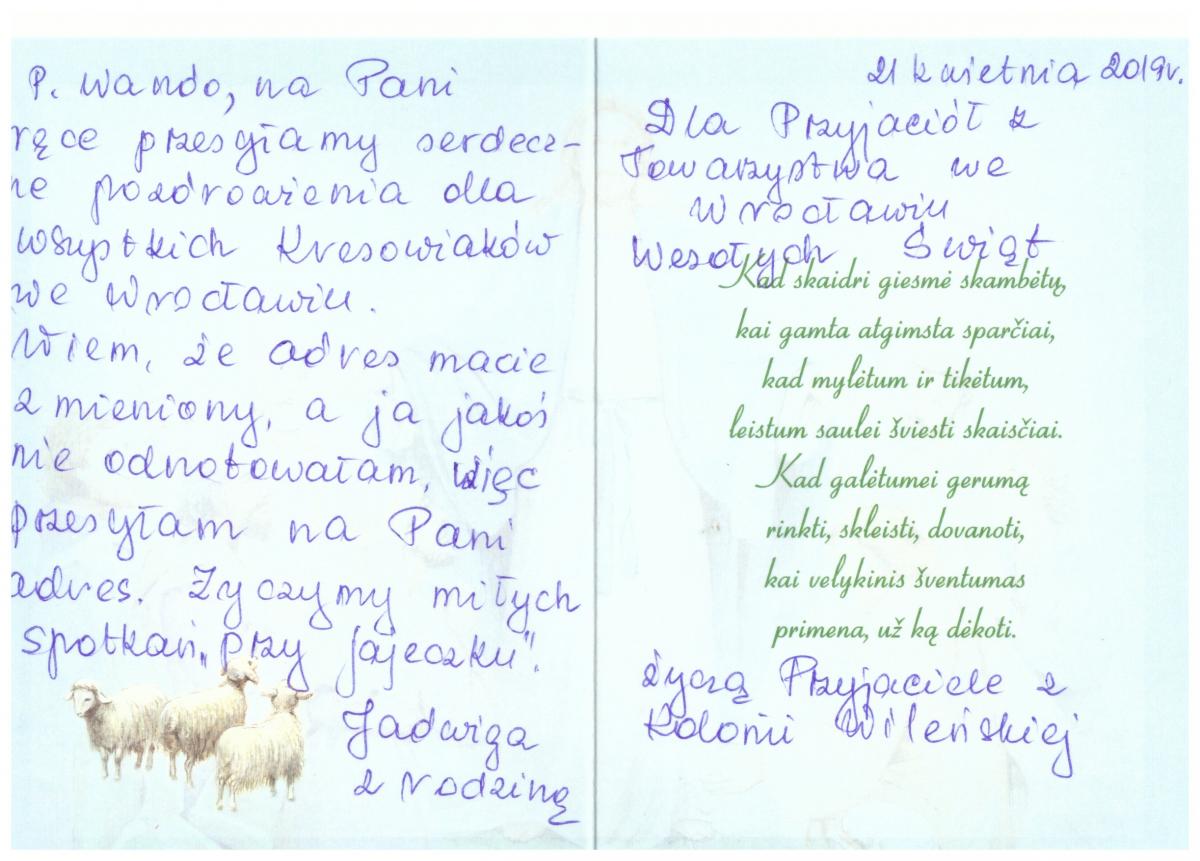 P. Wando, na Pani
ręce przesyłamy serdecz-
ne pozdrowienia dla
wszystkich Kresowiaków
we Wrocławiu.
Wiem, że adres macie
zmieniony, a ja jakoś
nie odnotowałam, więc
przesyłam na Pani
adres. Życzymy miłych
spotkań „przy jajeczku".
Jadwiga
z rodziną
21 kwietnia 2019r.
Dla Przyjaciół z
Towarzystwa we
Wrocławiu
Wesołych Świąt
Kad skaidri giesmė skambėtų,
kai gamta atgimsta sparčiai,
kad mylėtum ir tikėtum,
leistum saulei šviesti skaisčiai.
Kad galėtumei gerumą
rinkti, skleisti, dovanoti,
kai velykinis šventumas
primena, už ką dėkoti.
życzą Przyjaciele z
Kolonii Wileńskiej